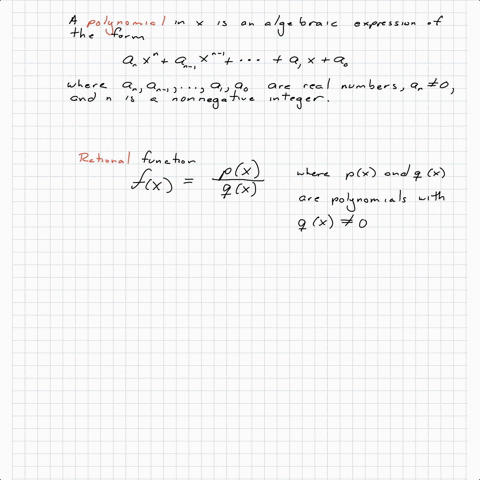 A polynomial in x is an algebraic expression of
the form
aₙxⁿ + aₙ₋₁xⁿ⁻¹ + ··· + a₁x + a₀
where aₙ, aₙ₋₁, ..., a₁, a₀ are real numbers, aₙ ≠ 0,
and n is a nonnegative integer.
Rational function
f(x) = p(x)/q(x) where p(x) and q(x)
are polynomials with
q(x) ≠ 0